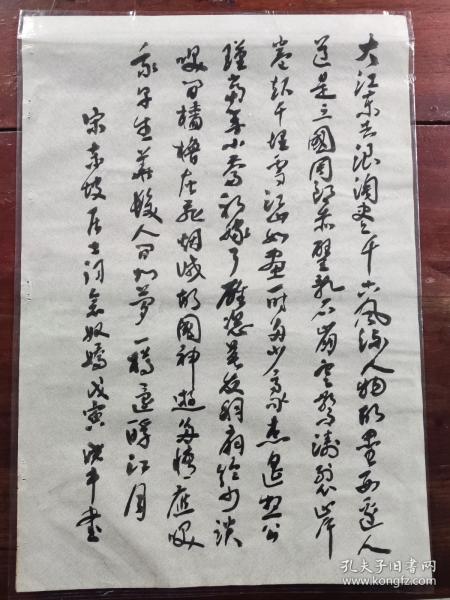 大江东去浪淘尽千古风流人物故垒西边人
道是三國周郎赤壁乱石崩空惊涛裂岸
卷起千堆雪江山如画一时多少豪杰遥想公
瑾當年小喬初嫁了雄姿英发羽扇纶巾谈
笑间樯橹灰飛烟滅故國神遊多情應笑
我早生華髮人间如梦一樽還酹江月
宋东坡居士词念奴嬌戊寅 书
孔夫子旧书网
www.kongfz.com